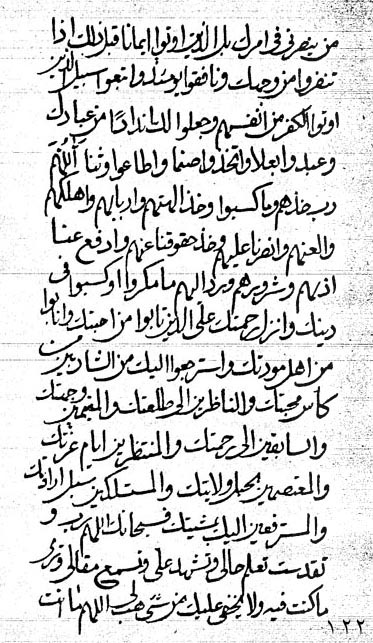 من يتصرف في امرك بل الذين اوتوا ايمانا قبل ذلك اذا
تنفروا من وجهك ونافقوا بوعدك واتبعوا سبل الذين
اوتوا الكفر من انفسهم وجعلوا لك اندادا من عبادك
وعبدوا بعلا واتخذوا صنما واطاعوا وثنا اللهم
رب خذهم وما كسبوا وخذ الهتهم واربابهم واهلكهم
والعنهم وانصرنا عليهم وخذ حقوقنا عنهم وادفع عنا
اذيهم وشرورهم ورد اليهم ما مكروا او كسبوا في
دينك وانزل رحمتك على الذين تابوا من احبتك وانابوا
من اهل مودتك واسترجعوا اليك من الشاربين من
كأس محبتك والناظرين الى طلعتك والمقيمين وجهتك
والسابقين الى رحمتك والمنتظرين ايام عزتك
والمعتصمين بحبل ولايتك والمستلكين سبل ارادتك
والمسترفعين اليك بمشيتك فسبحانك اللهم رب و
تقدست تعلم حالي وتشهد علي وتسمع مقالي وترى
ما كنت فيه ولا يخفى عليك من شيء هب لي اللهم ما انت
١٢٢